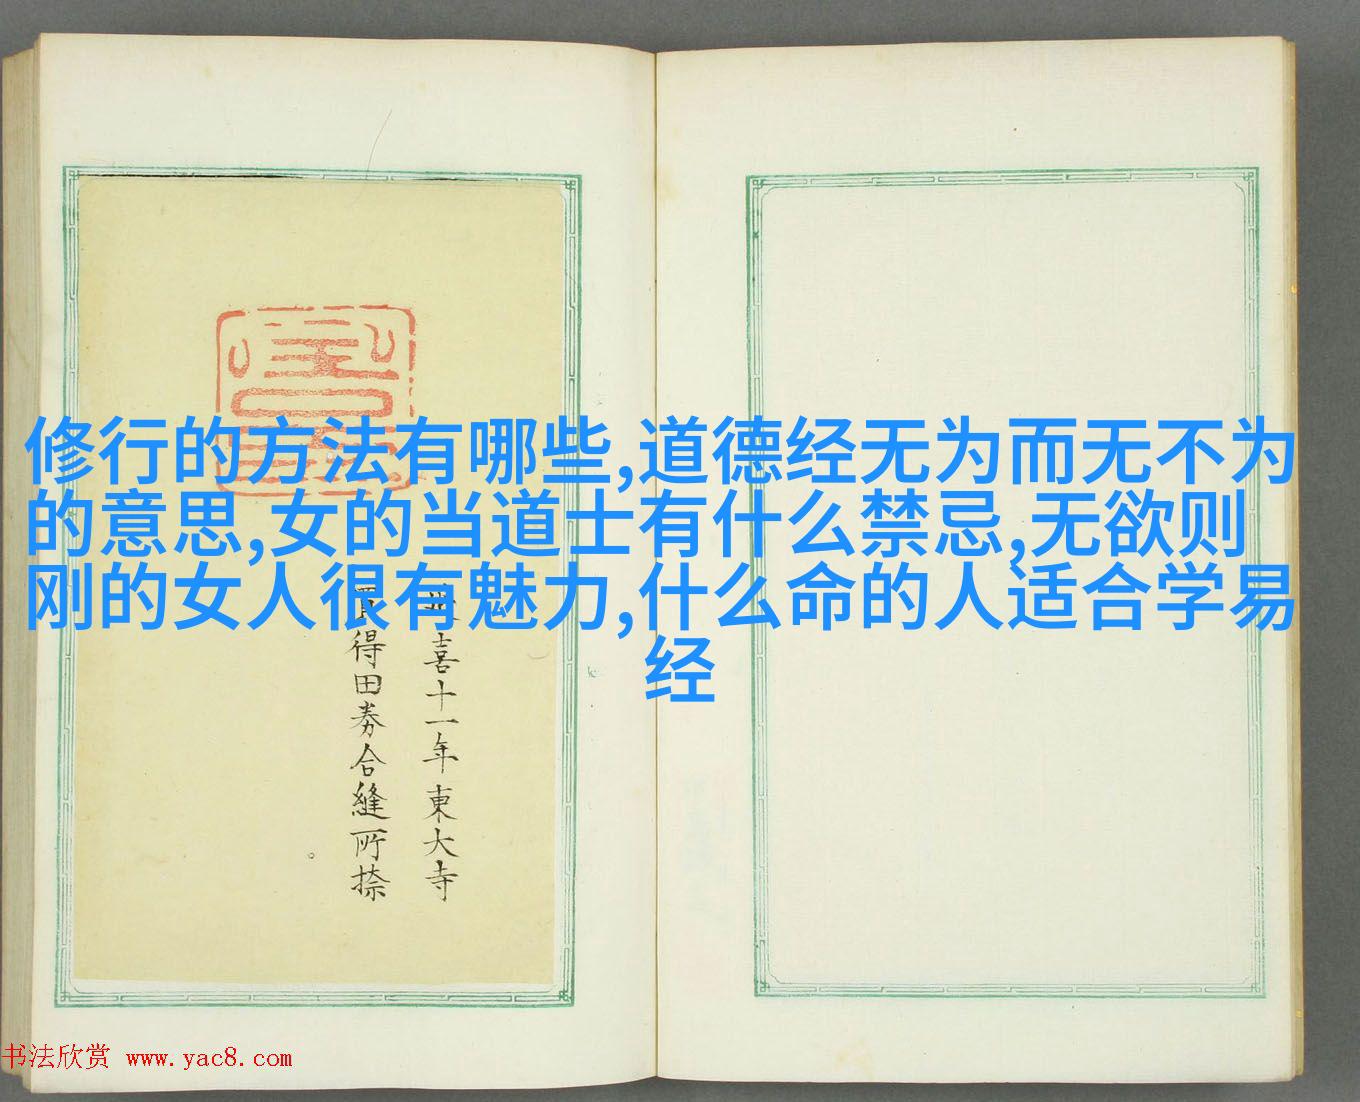 修行的方法有哪些,道德经无为而无不为
的意思,女的当道士有什么禁忌,无欲则
刚的女人很有魅力,什么命的人适合学易
经
喜十一年東大寺
得田券合縫所捺
书法欣赏 www.yac8.com